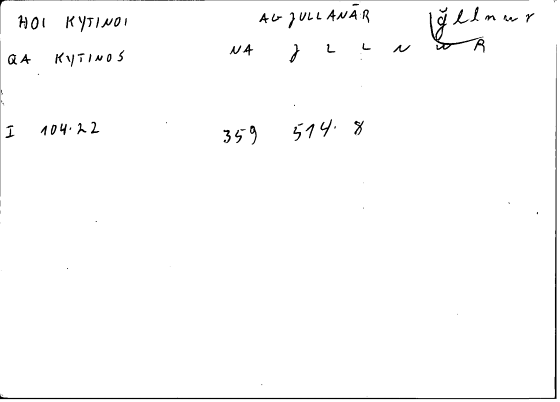 HOI KYTINOI AL JULLANĀR ǧllnwr
QA KYTINOS NA J L L N W R
I 104.22 359 514.8